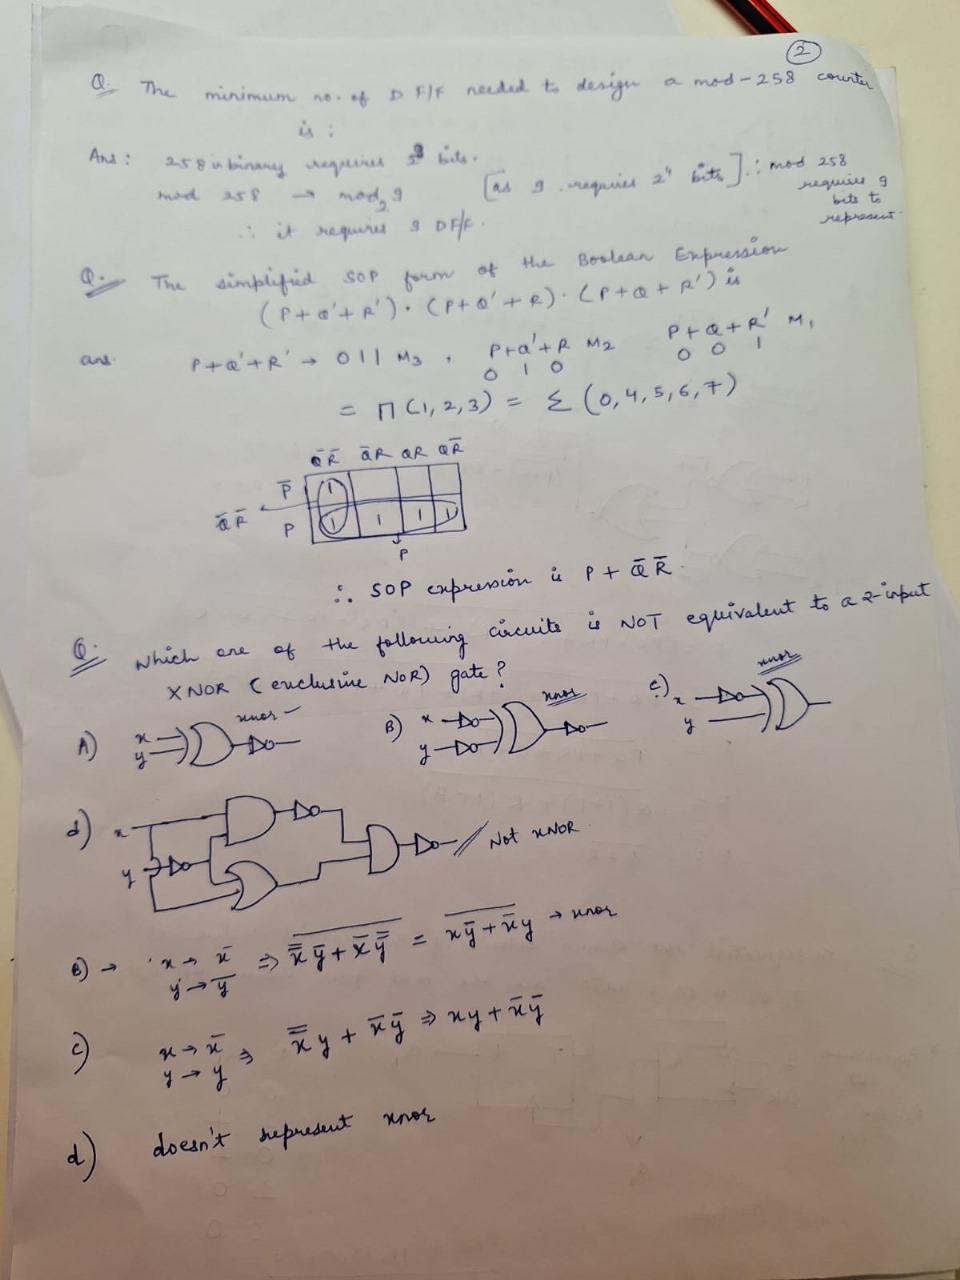 2
Q. The minimum no. of D F/F needed to design a mod-258 counter
is :
Ans : 258 in binary requires 9 bits.
mod 258 → mod 9 [as 9 requires bits] ∴ mod 258
requires 9
bits to
represent.
∴ it requires 9 DF/F.
Q. The simplified SOP form of the Boolean Expression
(P+Q'+R')·(P+Q'+R)·(P+Q+R') is
ans. P+Q'+R' → 011 M₃ , P+Q'+R M₂ P+Q+R' M₁
0 1 0 0 0 1
= Π(1,2,3) = Σ(0,4,5,6,7)
Q̄R̄ Q̄R QR QR̄
P̄ 1
Q̄R̄ P 1 1 1 1
P
∴ SOP expression is P + Q̄R̄.
Q. Which one of the following circuits is NOT equivalent to a 2-input
XNOR (exclusive NOR) gate?
A) x y xnor
B) x y xnor
C) x y xnor
d) x y Not xNOR
B) → x → x̄ y → ȳ ⇒ x̿ȳ + x̄y̿ = xȳ + x̄y → xnor
c) x → x̄ y → y ⇒ x̿y + x̄ȳ ⇒ xy + x̄ȳ
d) doesn't represent xnor